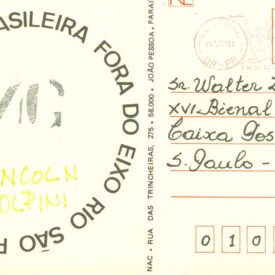 ASILEIRA FORA DO EIXO RIO SÃO P
NCOLN
OLPINI
NAC - RUA DAS TRINCHEIRAS, 275 - 58.000 - JOÃO PESSOA, PARAÍ
Sr. Walter
XVI Bienal
Caixa Pos
S. Paulo -
0 1 0